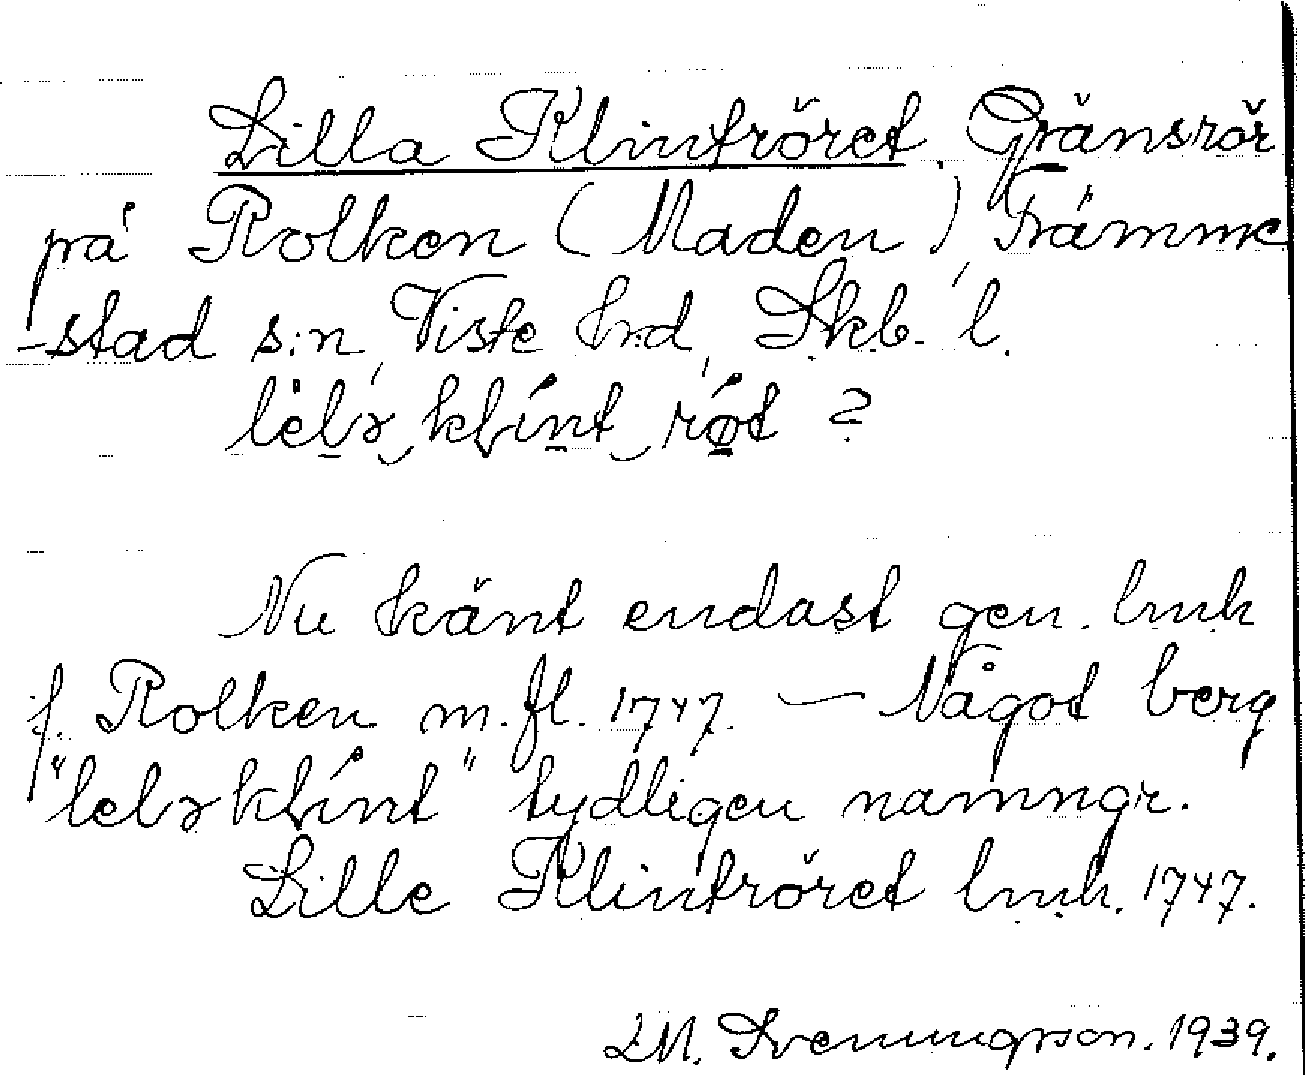 Lilla Klintröret. Gränsrör
på Rolken (Maden), Främme
-stad s:n, Viste hrd, Skb. l.
lèlɘ klínt röt ?
Nu känt endast gen. lmh
f. Rolken m.fl. 1747. — Något berg
"lelɘ klínt" tydligen namngr.
Lille Klintröret lmh. 1747.
LM. Svenungsson. 1939.